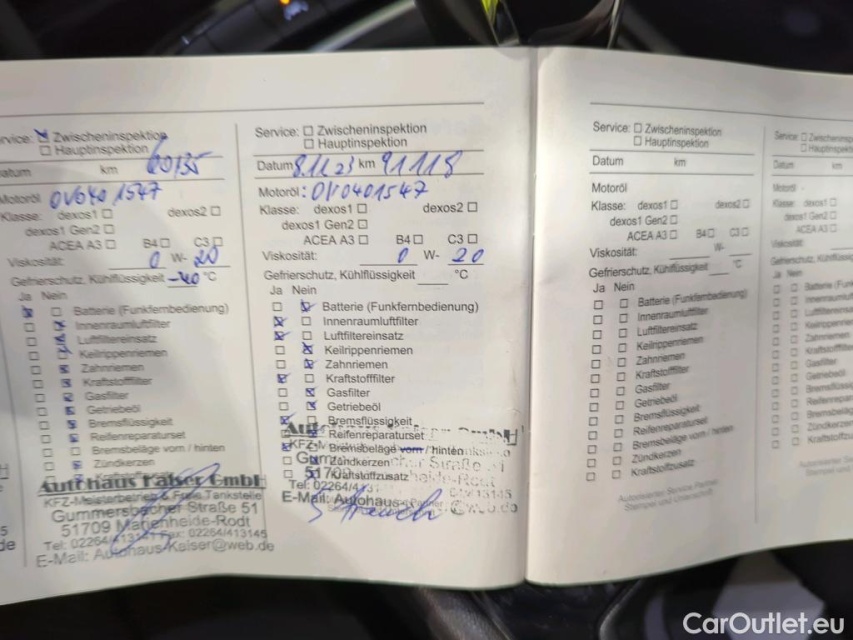 rvice: ☒ Zwischeninspektion
☐ Hauptinspektion
atum km 60135
Motoröl OV0401547
Klasse: dexos1 ☐ dexos2 ☐
dexos1 Gen2 ☐
ACEA A3 ☐ B4 ☐ C3 ☐
Viskosität: 0 W- 20
Gefrierschutz, Kühlflüssigkeit -40 °C
Ja Nein
☒ ☐ Batterie (Funkfernbedienung)
☐ ☒ Innenraumluftfilter
☐ ☒ Luftfiltereinsatz
☐ ☒ Keilrippenriemen
☐ ☒ Zahnriemen
☐ ☒ Kraftstofffilter
☐ ☒ Gasfilter
☐ ☒ Getriebeöl
☐ ☒ Bremsflüssigkeit
☐ ☒ Reifenreparaturset
☐ ☒ Bremsbeläge vorn / hinten
☐ ☒ Zündkerzen
Autohaus Kaiser GmbH
KFZ-Meisterbetrieb & Freie Tankstelle
Gummersbacher Straße 51
51709 Marienheide-Rodt
Tel: 02264/413141 Fax: 02264/413145
E-Mail: Autohaus-Kaiser@web.de
Service: ☐ Zwischeninspektion
☐ Hauptinspektion
Datum 8.11.23 km 91118
Motoröl: OV0401547
Klasse: dexos1 ☐ dexos2 ☐
dexos1 Gen2 ☐
ACEA A3 ☐ B4 ☐ C3 ☐
Viskosität: 0 W- 20
Gefrierschutz, Kühlflüssigkeit °C
Ja Nein
☐ ☒ Batterie (Funkfernbedienung)
☒ ☐ Innenraumluftfilter
☒ ☐ Luftfiltereinsatz
☐ ☒ Keilrippenriemen
☐ ☒ Zahnriemen
☒ ☐ Kraftstofffilter
☐ ☒ Gasfilter
☐ ☒ Getriebeöl
Bremsflüssigkeit
Reifenreparaturset
Bremsbeläge vorn / hinten
Zündkerzen
Kraftstoffzusatz
Tel: 02264/413
E-Mail: Autohaus @web.de
Service: ☐ Zwischeninspektion
☐ Hauptinspektion
Datum km
Motoröl
Klasse: dexos1 ☐ dexos2 ☐
dexos1 Gen2 ☐
ACEA A3 ☐ B4 ☐ C3 ☐
Viskosität: W-
Gefrierschutz, Kühlflüssigkeit °C
Ja Nein
☐ ☐ Batterie (Funkfernbedienung)
☐ ☐ Innenraumluftfilter
☐ ☐ Luftfiltereinsatz
☐ ☐ Keilrippenriemen
☐ ☐ Zahnriemen
☐ ☐ Kraftstofffilter
☐ ☐ Gasfilter
☐ ☐ Getriebeöl
☐ ☐ Bremsflüssigkeit
☐ ☐ Reifenreparaturset
☐ ☐ Bremsbeläge vorn / hinten
☐ ☐ Zündkerzen
☐ ☐ Kraftstoffzusatz
Autorisierter Service Partner
Stempel und Unterschrift
Service: ☐ Zwischeninspek
☐ Hauptinspektio
Datum km
Motoröl
Klasse: dexos1 ☐
dexos1 Gen2 ☐
ACEA A3 ☐
Viskosität:
Gefrierschutz, Kühlflüssigkeit
Ja Nein
☐ ☐ Batterie (Funk
☐ ☐ Innenraumluftf
☐ ☐ Luftfiltereinsat
☐ ☐ Keilrippenrieme
☐ ☐ Zahnriemen
☐ ☐ Kraftstofffilter
☐ ☐ Gasfilter
☐ ☐ Getriebeöl
☐ ☐ Bremsflüssigk
☐ ☐ Reifenreparatu
☐ ☐ Bremsbeläge
☐ ☐ Zündkerzen
☐ ☐ Kraftstoffzus
CarOutlet.eu